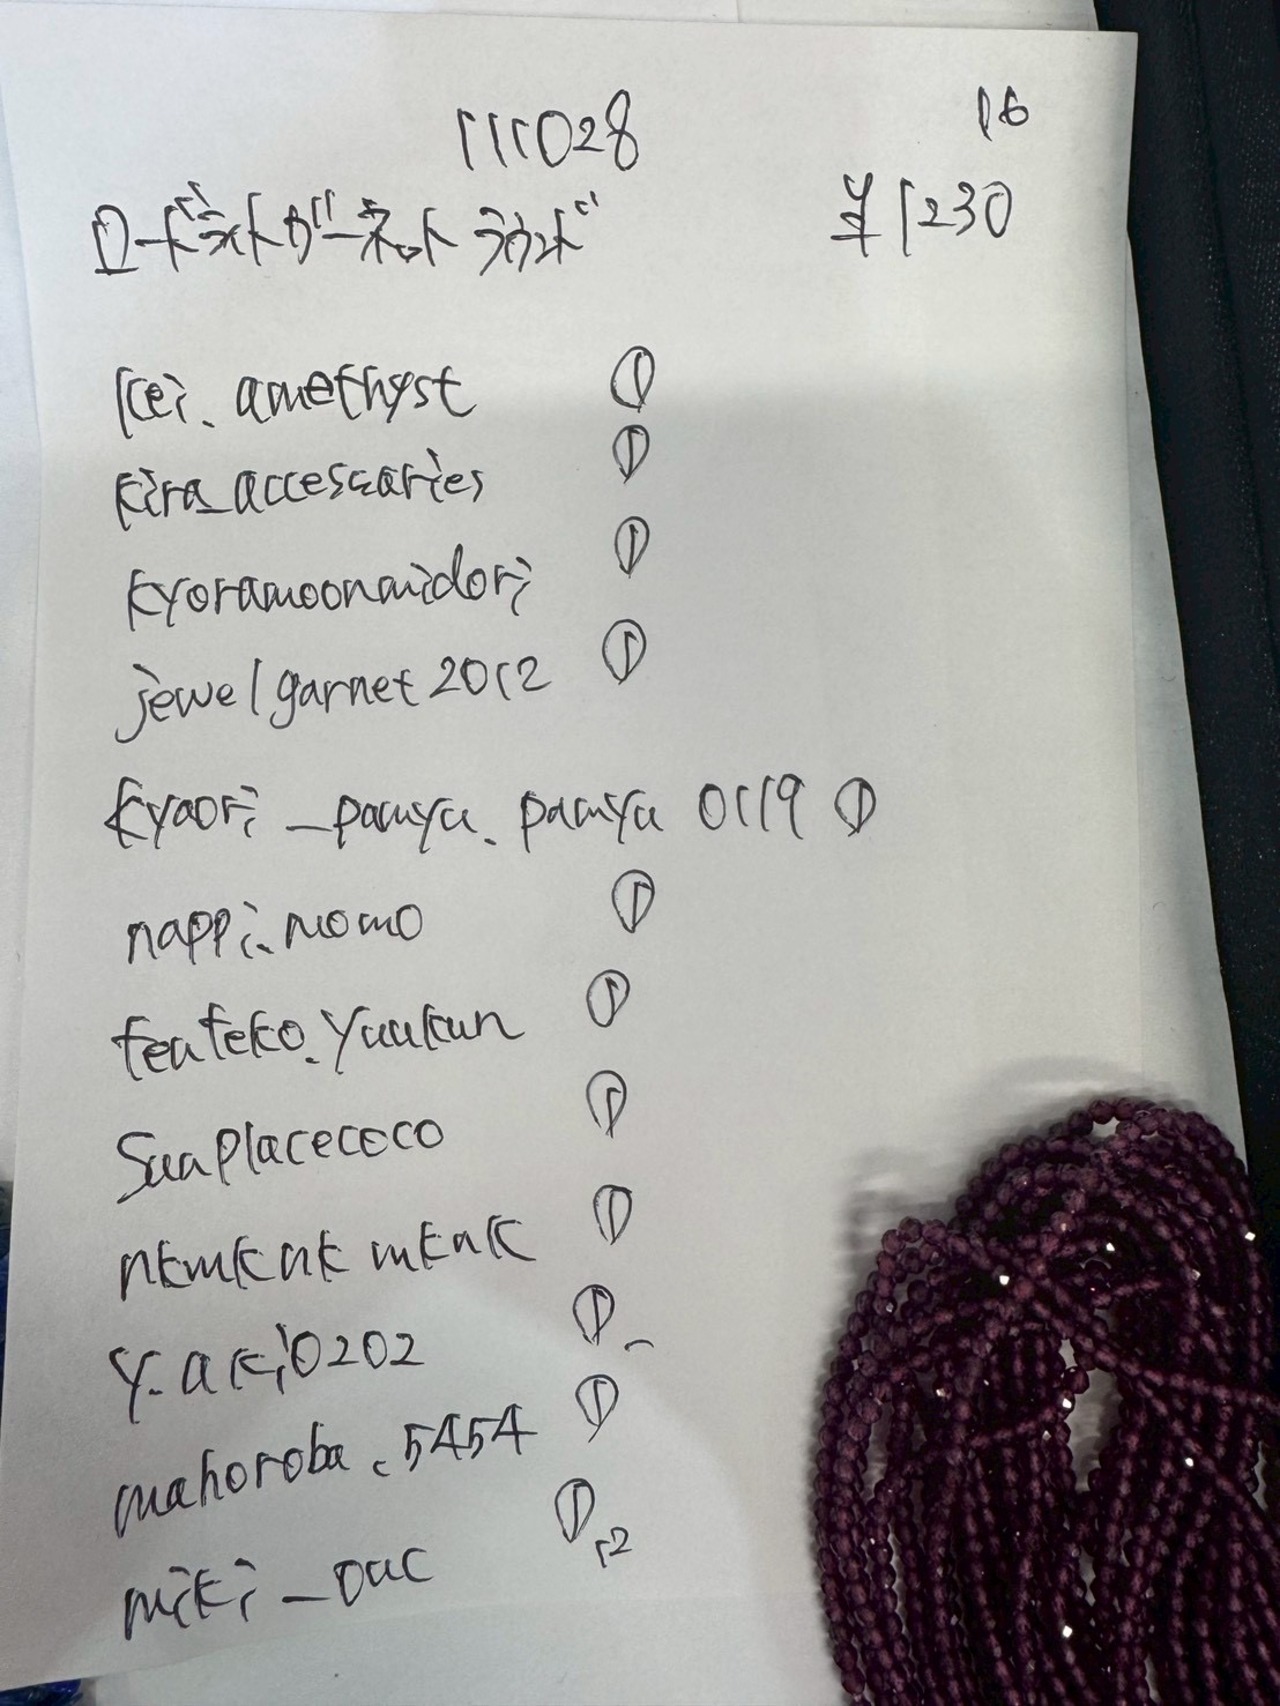 111028 16
ロードライトガーネットラウンド ¥1230
kei.amethyst ①
kira_accessaries ①
kyoramoonmidori ①
jewelgarnet2012 ①
kyaori_pamyu.pamyu 0119 ①
nappi.momo ①
teuteko.yuukun ①
SunPlacecoco ①
nkmknk mknk ①
y.aki0202 ①
mahoroba.5454 ①
miki_ouc ①
12